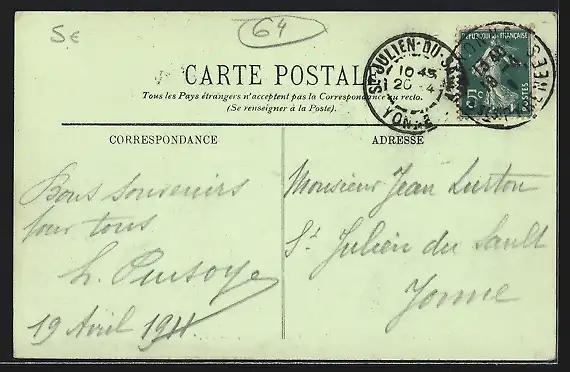 5€
64
CARTE POSTALE
Tous les Pays étrangers n'acceptent pas la Correspondance au recto.
(Se renseigner à la Poste).
ST JULIEN-DU-SAULT
10 45
26 -4
YONNE
REPUBLIQUE FRANÇAISE
5c
POSTES
CORRESPONDANCE
ADRESSE
Bons souvenirs
pour tous
19 Avril 1911
Monsieur Jean Lurton
St Julien du Sault
Yonne